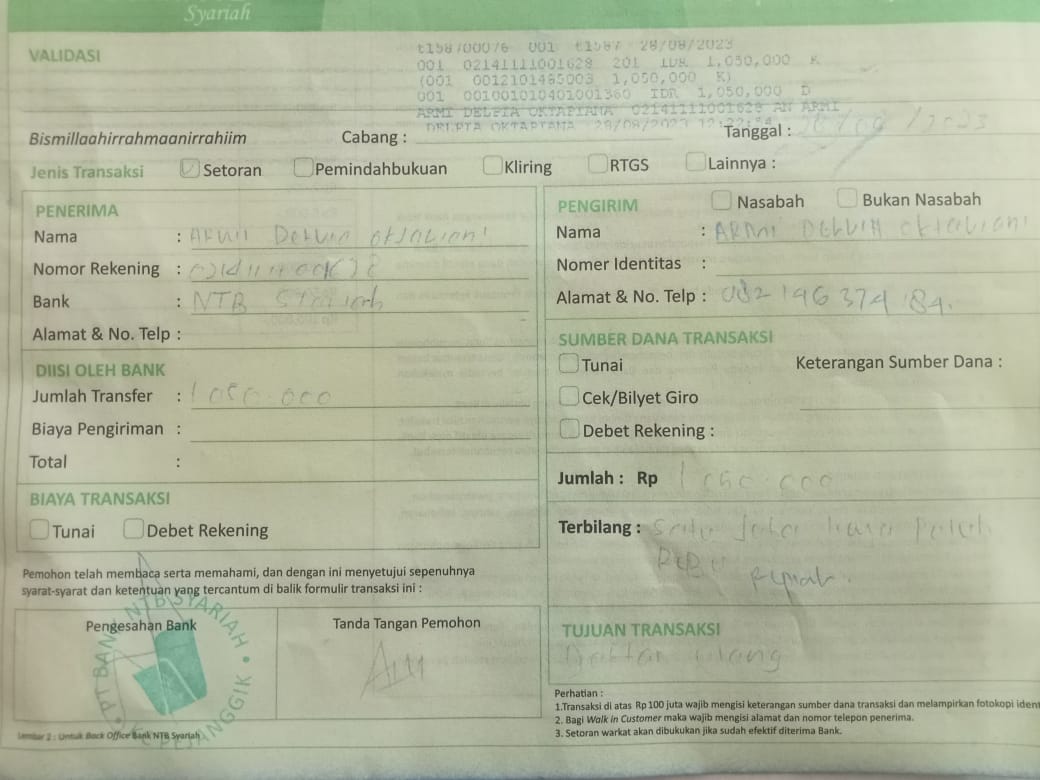 Syariah
VALIDASI
t158700076 001 t1587 28/08/2023
001 02141111001628 201 IDR 1,050,000 K
(001 0012101485003 1,050,000 K)
001 001001010401001360 IDR 1,050,000 D
ARMI DELFIA OKTAPIANA 02141111001628 AN ARMI
DELFIA OKTAPIANA 28/08/2023
Bismillaahirrahmaanirrahiim
Cabang :
Tanggal : /2023
Jenis Transaksi
Setoran
Pemindahbukuan
Kliring
RTGS
Lainnya :
PENERIMA
Nama :
Nomor Rekening :
Bank : NTB Syariah
Alamat & No. Telp :
DIISI OLEH BANK
Jumlah Transfer : 1.050.000
Biaya Pengiriman :
Total :
BIAYA TRANSAKSI
Tunai
Debet Rekening
Pemohon telah membaca serta memahami, dan dengan ini menyetujui sepenuhnya
syarat-syarat dan ketentuan yang tercantum di balik formulir transaksi ini :
Pengesahan Bank
Tanda Tangan Pemohon
PT BANK NTB SYARIAH
Lembar 2 : Untuk Back Office Bank NTB Syariah
PENGIRIM
Nasabah
Bukan Nasabah
Nama : ARMI
Nomer Identitas :
Alamat & No. Telp : 082 146 374 184.
SUMBER DANA TRANSAKSI
Tunai
Keterangan Sumber Dana :
Cek/Bilyet Giro
Debet Rekening :
Jumlah : Rp 1.050.000
Terbilang : Satu Juta Lima Puluh
Ribu Rupiah.
TUJUAN TRANSAKSI
Daftar Ulang
Perhatian :
1.Transaksi di atas Rp 100 juta wajib mengisi keterangan sumber dana transaksi dan melampirkan fotokopi ident
2. Bagi Walk in Customer maka wajib mengisi alamat dan nomor telepon penerima.
3. Setoran warkat akan dibukukan jika sudah efektif diterima Bank.